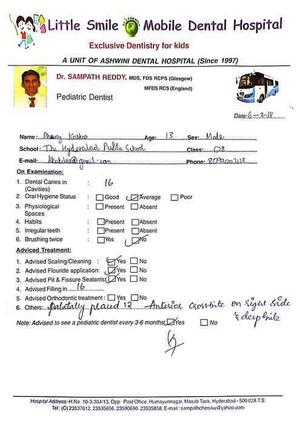 Little Smile Mobile Dental Hospital
Exclusive Dentistry for kids
A UNIT OF ASHWINI DENTAL HOSPITAL (Since 1997)
Dr. SAMPATH REDDY, MDS, FDS RCPS (Glasgow)
MFDS RCS (England)
Pediatric Dentist
Date: 6-2-18
Name: Krishna Age: 13 Sex: Male
School: The Hyderabad Public School Class:
E-mail: Phone:
On Examination:
1. Dental Caries in : 16
(Cavities)
2. Oral Hygiene Status : Good Average Poor
3. Physiological : Present Absent
Spaces
4. Habits : Present Absent
5. Irregular teeth : Present Absent
6. Brushing twice : Yes No
Adviced Treatment:
1. Advised Scaling/Cleaning : Yes No
2. Advised Flouride application: Yes No
3. Advised Pit & Fissure Sealants: Yes No
4. Advised Filling in 16
5. Advised Orthodontic treatment : Yes No
6. Others: Palatally placed 12 Anterior crossbite on right side
& deep bite
Note: Advised to see a pediatric dentist every 3-6 months Yes No
Hospital Address: H.No. 10-3-304/13, Opp. Post Office, Humayunnagar, Masab Tank, Hyderabad - 500 028
Tel: (O) 23537612, 23535656, 23590690, 23535858, E-mail: